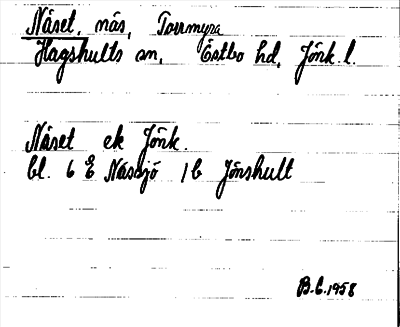 Näset, näs, Torrmyra
Hagshults sn, Östbo hd, Jönk. l.
Näset ek Jönk.
bl. 6 E Nässjö 1 b Jönshult
B.E. 1958